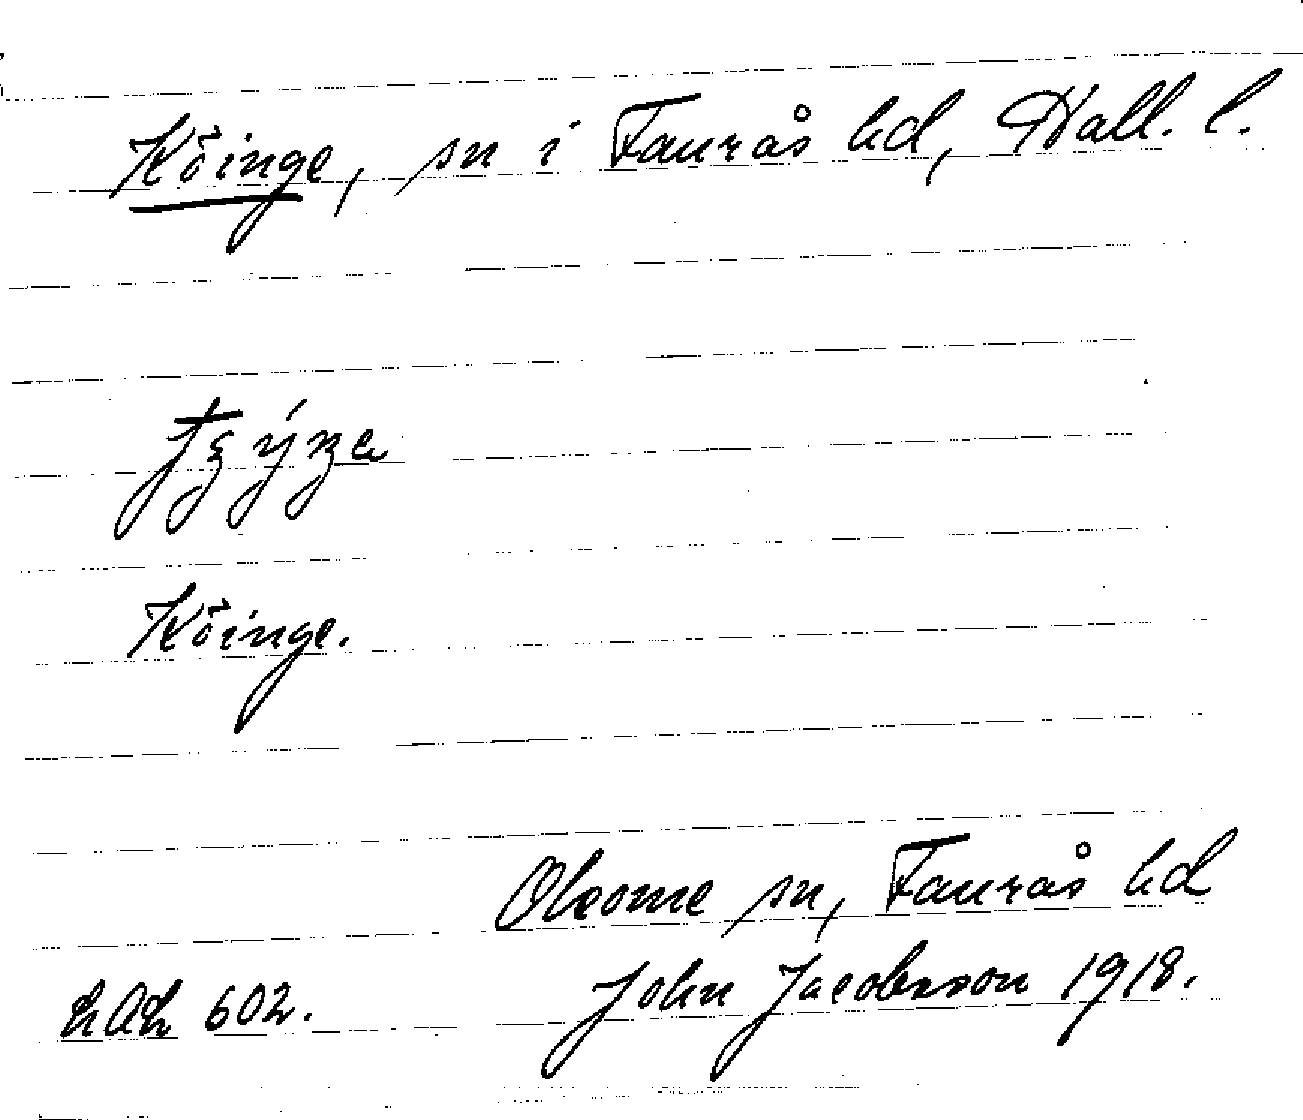 Köinge, sn i Faurås hd, Hall. l.
Köinge.
Okome sn, Faurås hd
602. John Jacobsson 1918.